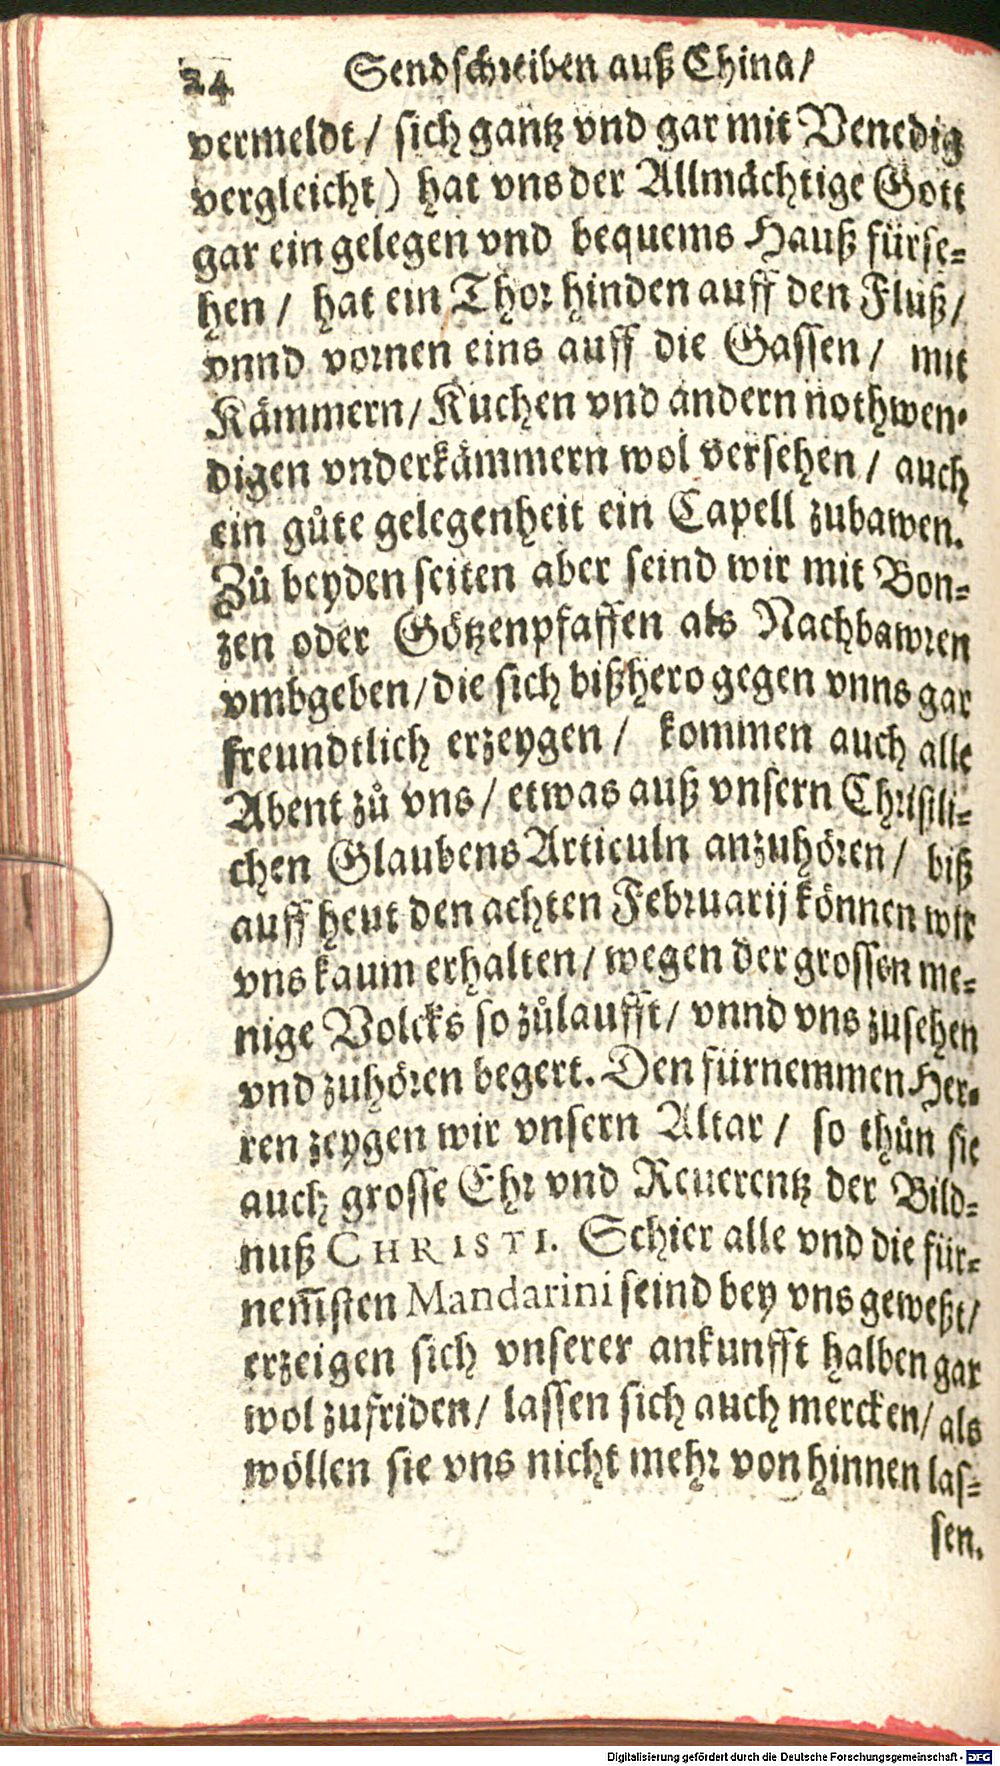 24 Sendschreiben auß China/
vermeldt / sich gantz vnd gar mit Venedig
vergleicht) hat vns der Allmächtige Gott
gar ein gelegen vnd bequems Hauß fürse-
hen / hat ein Thor hinden auff den Fluß /
vnnd vornen eins auff die Gassen / mit
Kämmern / Kuchen vnd andern nothwen-
digen vnderkämmern wol versehen / auch
ein gůte gelegenheit ein Capell zubawen.
Zů beyden seiten aber seind wir mit Bon-
zen oder Götzenpfaffen als Nachbawren
vmbgeben / die sich bißhero gegen vnns gar
freundtlich erzeygen / kommen auch alle
Abent zů vns / etwas auß vnsern Christli-
chen Glaubens Articuln anzuhören / biß
auff heut den achten Februarij können wir
vns kaum erhalten / wegen der grossen me-
nige Volcks so zůlaufft / vnnd vns zusehen
vnd zuhören begert. Den fürnemmen Her-
ren zeygen wir vnsern Altar / so thůn sie
auch grosse Ehr vnd Reuerentz der Bild-
nuß CHRISTI. Schier alle vnd die für-
nem̄sten Mandarini seind bey vns geweßt /
erzeigen sich vnserer ankunfft halben gar
wol zufriden / lassen sich auch mercken / als
wöllen sie vns nicht mehr von hinnen las-
sen.
Digitalisierung gefördert durch die Deutsche Forschungsgemeinschaft - DFG